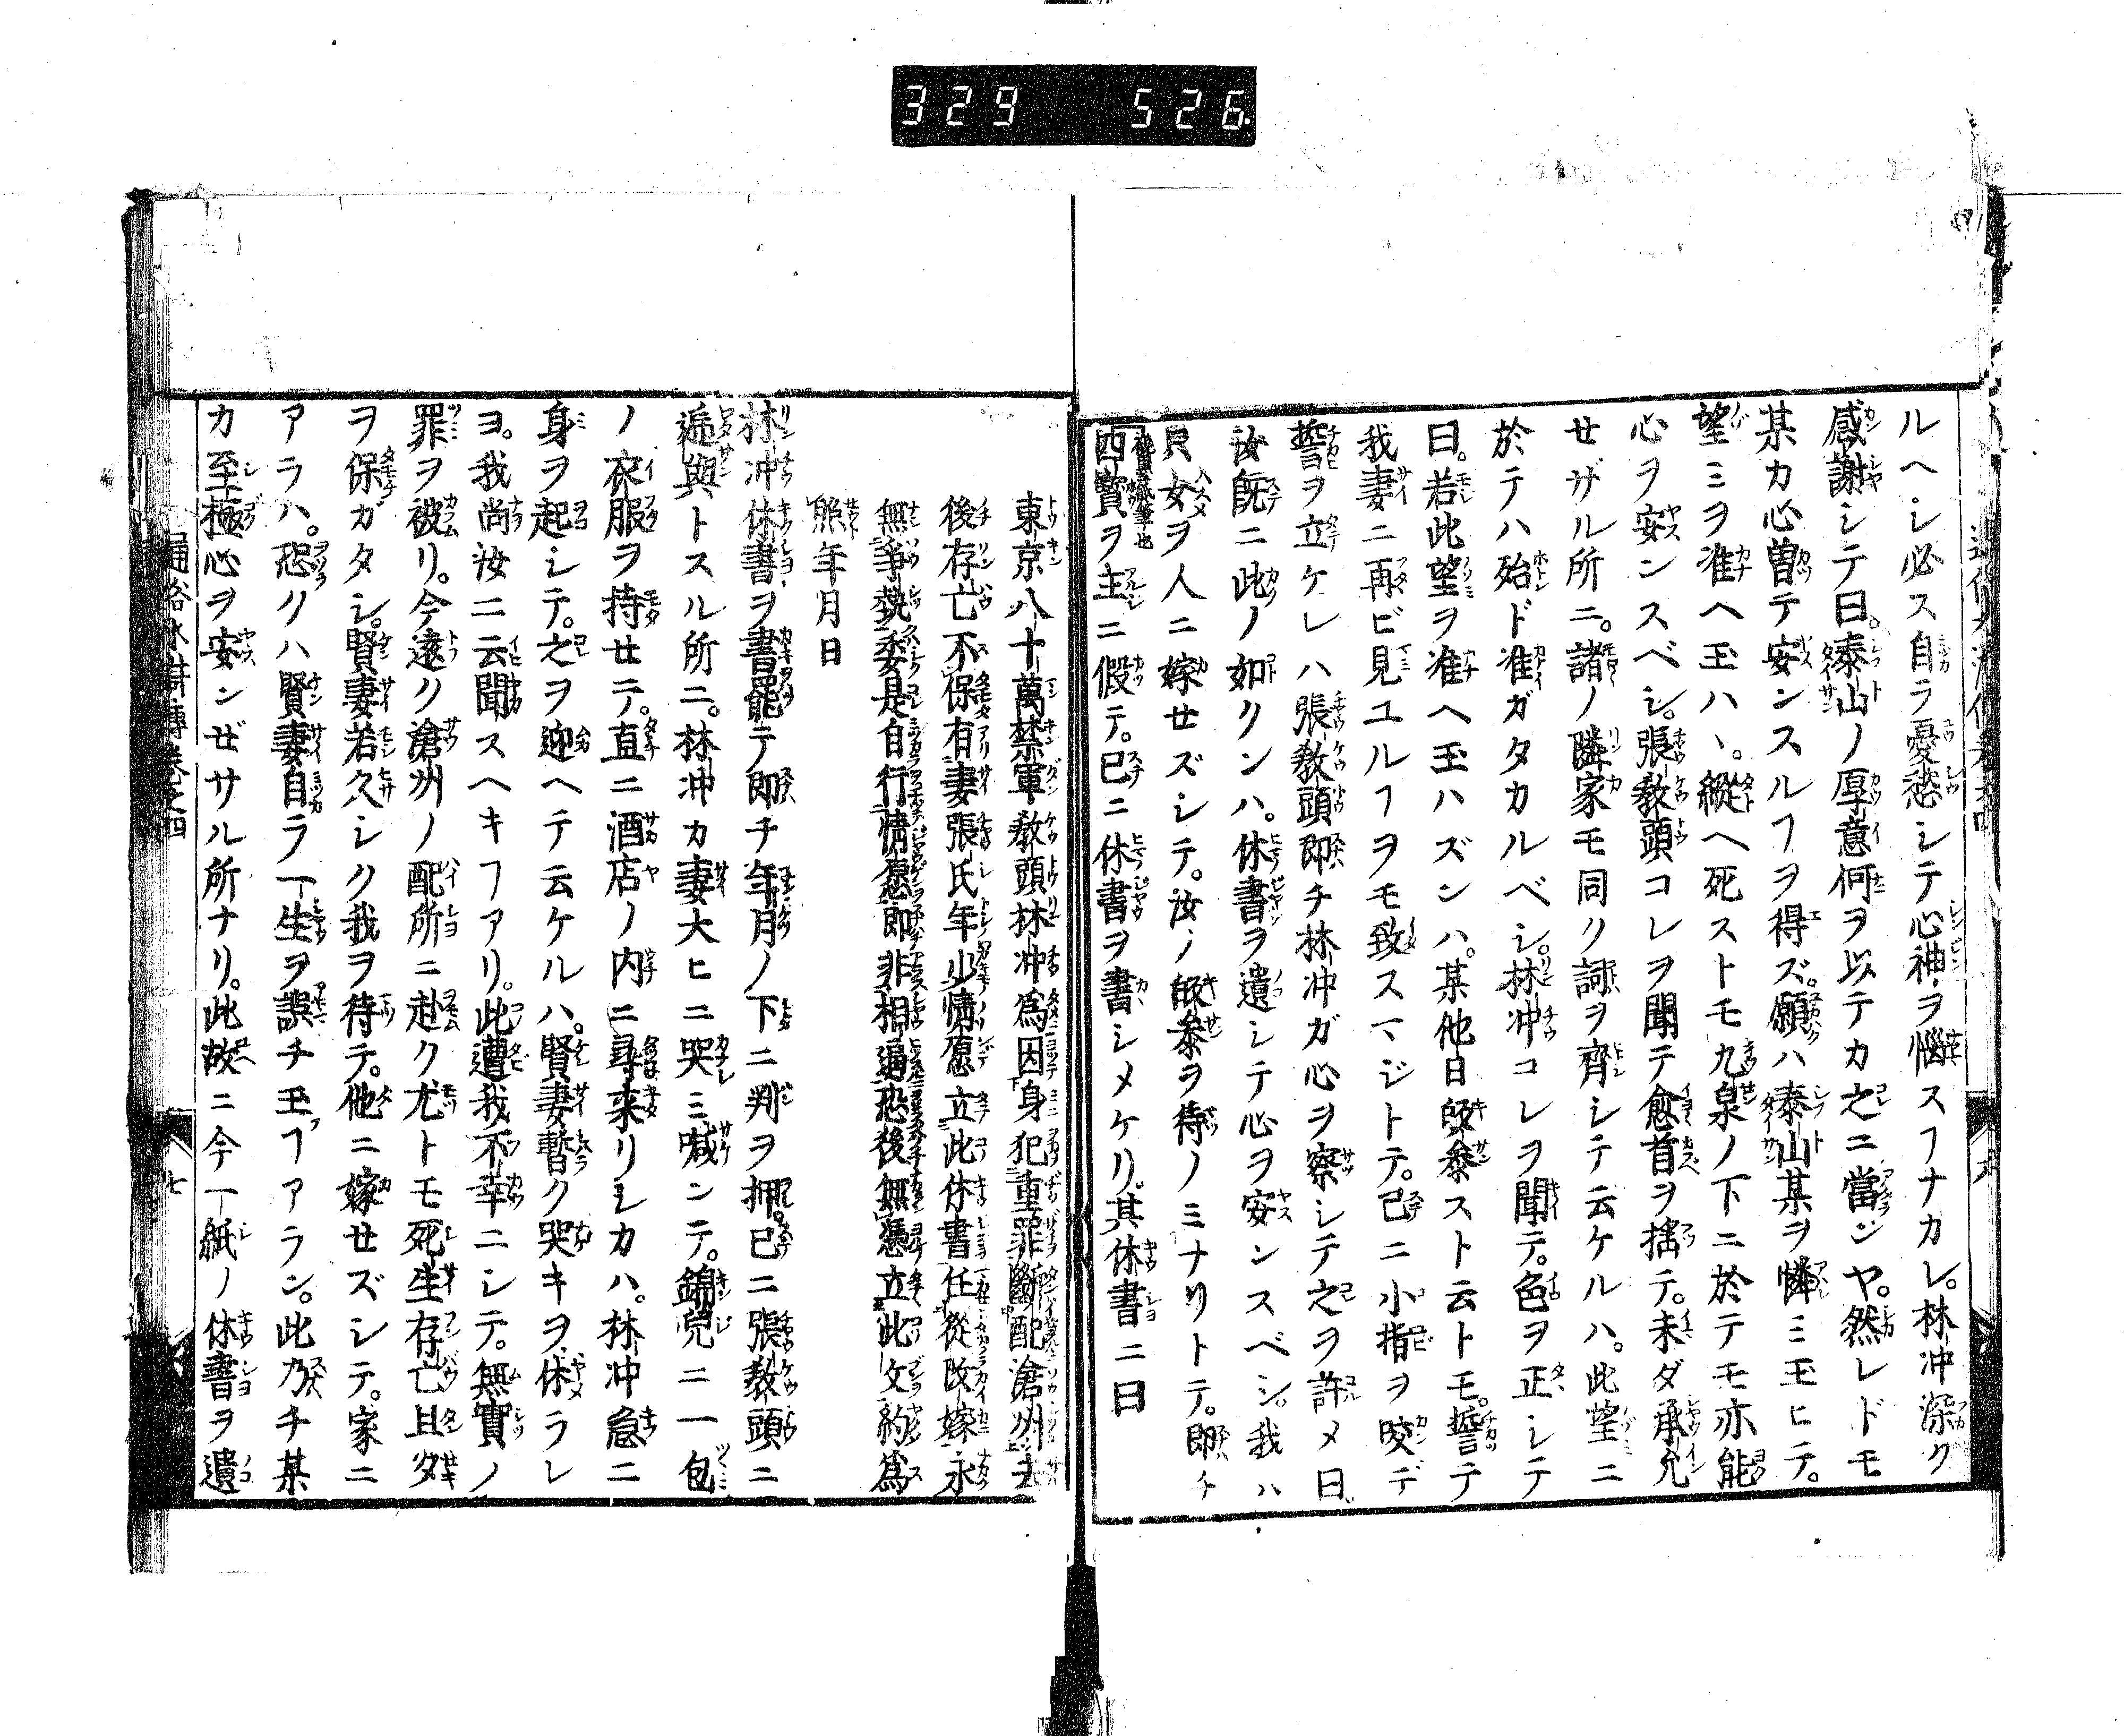 329 526
ルヘシ必ス自ラ憂愁シテ心神ヲ惱スヿナカレ。林冲深ク
感謝シテ曰。泰山ノ厚意何ヲ以テカ之ニ當ンヤ。然レドモ
某カ心曽テ安ンスルヿヲ得ズ。願ハ泰山某ヲ憐ミ玉ヒテ。
望ミヲ准ヘ玉ハヽ。縱ヘ死ストモ九泉ノ下ニ於テモ亦能
心ヲ安ンスベシ。張教頭コレヲ聞テ愈首ヲ搖テ。未ダ承允
セザル所ニ。諸ノ隣家モ同ク詞ヲ齊シテ云ケルハ。此望ニ
於テハ殆ド准ガタカルベシ。林冲コレヲ聞テ。色ヲ正シテ
曰。若此望ヲ准ヘ玉ハズンハ。某他日皈參スト云トモ。誓テ
我妻ニ再ビ見ユルヿヲモ致スマジトテ。已ニ小指ヲ咬デ
誓ヲ立ケレハ張教頭即チ林冲ガ心ヲ察シテ之ヲ許メ曰。
汝既ニ此ノ如クンハ。休書ヲ遺シテ心ヲ安ンスベシ。我ハ
只女ヲ人ニ嫁セズシテ。汝ノ皈參ヲ待ノミナリトテ。即チ
四寶ヲ主ニ假テ。已ニ休書ヲ書シメケリ。其休書ニ曰
東京八十萬禁軍教頭林冲爲因身犯重罪斷配滄州去
後存亡不保有妻張氏年少情愿立此休書任從改嫁永
無爭執委是自行情愿即非相逼恐後無憑立此文約爲
照年月日
林冲休書ヲ書罷テ即チ年月ノ下ニ判ヲ押。已ニ張教頭ニ
遞與トスル所ニ。林冲カ妻大ヒニ哭ミ喊ンテ。錦兒ニ一包
ノ衣服ヲ持セテ。直ニ酒店ノ内ニ尋来リシカハ。林冲急ニ
身ヲ起シテ。之ヲ迎ヘテ云ケルハ。賢妻暫ク哭キヲ休ラレ
ヨ。我尚汝ニ云聞スヘキヿアリ。此遭我不幸ニシテ。無實ノ
罪ヲ被リ。今遠ク滄州ノ配所ニ赴ク尤トモ死生存亡且夕
ヲ保ガタシ。賢妻若久シク我ヲ待テ。他ニ嫁セズシテ。家ニ
アラハ。恐クハ賢妻自ラ一生ヲ誤チ玉フヿアラン。此乃チ某
カ至極心ヲ安ンゼサル所ナリ。此故ニ今一紙ノ休書ヲ遺
通俗水滸傳卷之四
七